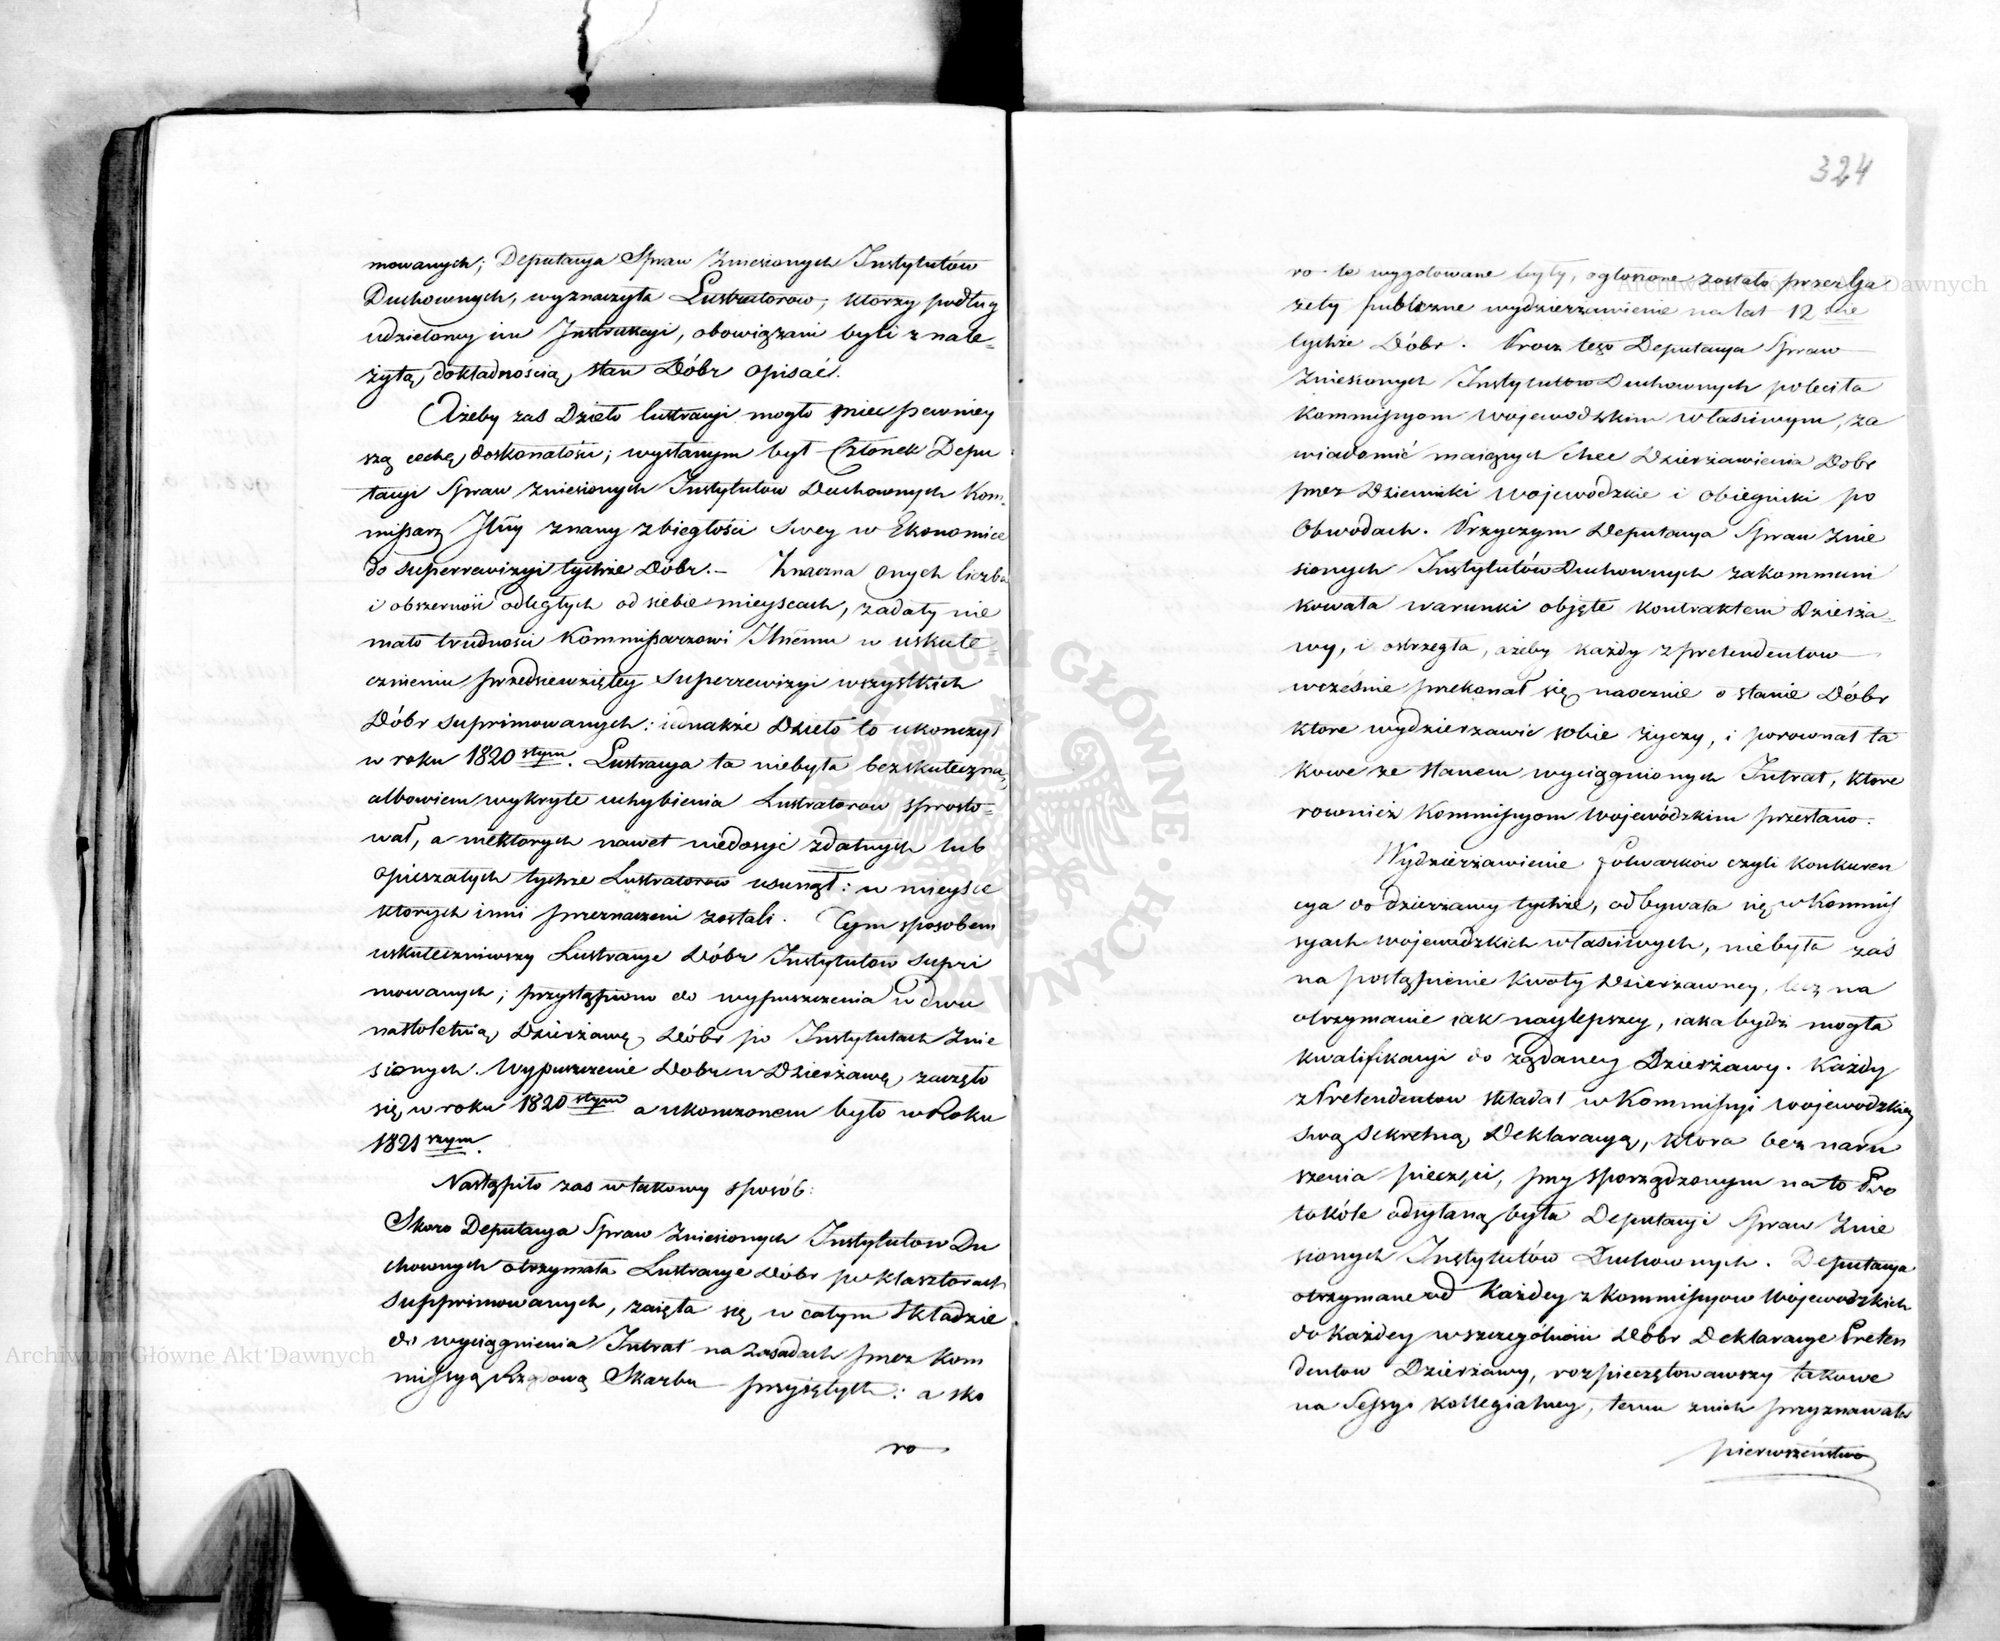 mowanych; Deputacya Spraw Zniesionych Instytutów
Duchownych, wyznaczyła Lustratorow, ktorzy podług
udzieloney im Instrukcyi, obowiązani byli z nale=
żytą dokładnością stan Dóbr opisać.
Ażeby zas Dzieło lustracyi mogło miec pewniey
szą cechę doskonałości; wysłanym był Członek Depu
tacyi Spraw Zniesionych Instytutow Duchownych Kom=
missarz znany z biegłości swey w Ekonomice
do superrewizyi tychże Dóbr. – Znaczna onych liczba
i obszerność odległych od siebie mieyscach, zadały nie
mało trudności Kommissarzowi w uskute=
cznieniu przedsiewziętey superrewizyi wszystkich
Dóbr suprimowanych: iednakże Dzieło to ukonczył
w roku 1820 stym. Lustracya ta niebyła bezskuteczną,
albowiem wykryte uchybienia Lustratorow sprosto=
wał, a niektorych nawet niedosyć zdatnych lub
opieszałych tychże Lustratorow usunął: w mieysce
ktorych inni przeznaczeni zostali. Tym sposobem
uskuteczniwszy Lustracye Dóbr Instytutow supri
mowanych; przystąpiono do wypuszczenia w dwu
nastoletnią Dzierżawę Dóbr po Instytutach Znie
sionych. Wypuszczenie Dobr w Dzierżawę, zaczęło
się w roku 1820 stym a ukonczonem było w Roku
1821 szym.
Nastąpiło zas w takowy sposób:
Skoro Deputacya Spraw Zniesionych Instytutow Du
chownych otrzymała Lustracye Dóbr po klasztorach
supprimowanych, zaięła się w całym składzie
do wyciągnienia Intrat na zasadach przez Kom
missyą Rządową Skarbu przyiętych: a sko
ro
324
ro te wygotowane były, ogłoszone zostało przez Ga
zety publiczne wydzierżawienie na lat 12 cie
tychże Dóbr. Procz tego Deputacya Spraw
Zniesionych Instytutow Duchownych poleciła
Kommissyom Wojewodzkim właściwym, za
wiadomić maiących chec Dzierżawienia Dobr
przez Dzienniki Wojewodzkie i obiegniki po
Obwodach. Przyczym Deputacya Spraw Znie
sionych Instytutów Duchownych zakommuni
kowała warunki objęte kontraktem Dzierża=
wy, i ostrzegła, ażeby każdy z pretendentow
wcześnie przekonał się naocznie o stanie Dóbr
ktore wydzierzawic sobie życzy, i porownał ta
kowe ze stanem wyciągnionych Intrat, ktore
rownież Kommissyom Wojewódzkim przesłano.
Wydzierżawienie Folwarków czyli konkuren
cya do dzierzawy tychże, odbywała się w Kommis
syach wojewodzkich właściwych, niebyła zaś
na postąpienie kwoty Dzierżawney, lecz na
otrzymanie iak naylepszey, iaka bydz mogła
kwalifikacyi do żądaney Dzierżawy. Każdy
z Pretendentow składał w Kommissyi Wojewodzkiey
swą sekretną Deklaracyą, ktora bez naru
szenia pieczęci, przy sporządzonym na to Pro
tokóle odsyłaną była Deputacyi Spraw Znie
sionych Instytutów Duchownych. Deputacya
otrzymane od każdey z Kommissyow Wojewodzkich
do każdey wszczególności Dóbr Deklaracye Preten
dentow Dzierżawy, rozpieczętowawszy takowe
na Sessyi kollegialney, temu z nich przyznawała
pierwszeństwo
Archiwum Główne Akt Dawnych